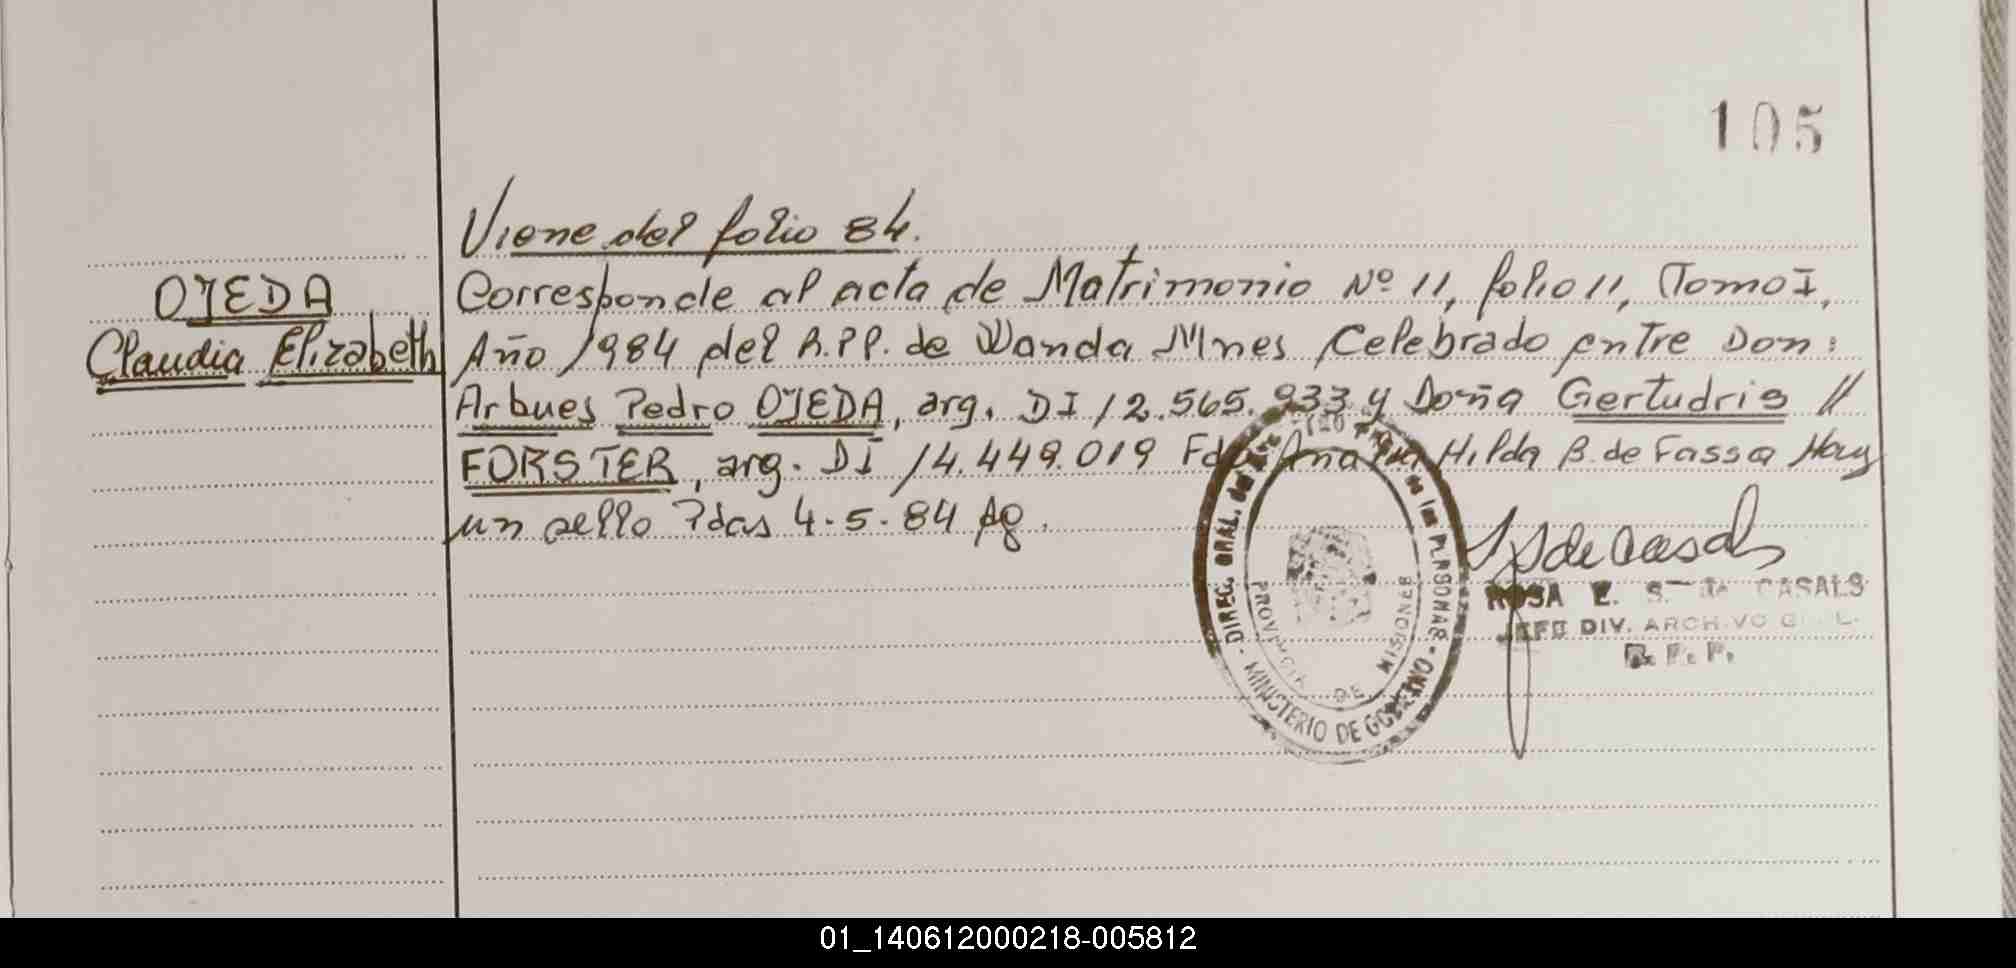 105
Viene del folio 84.
OJEDA
Claudia Elizabeth
Corresponde al acta de Matrimonio Nº 11, folio 11, Tomo I,
Año 1984 del R.P.P. de Wanda Mnes Celebrado entre Don:
Arbues Pedro OJEDA, arg. DI 12.565.933 y Doña Gertudris //
FORSTER, arg. DI 14.449.019 Fdo Ana Hilda B. de Fassa Hay
un sello Pdas 4-5-84
DIREC. GRAL. del de las PERSONAS - MINISTERIO DE GOBIERNO
PROVINCIA DE MISIONES
ROSA E. S. de CASALS
JEFE DIV. ARCHIVO
R. P. P.
01_140612000218-005812